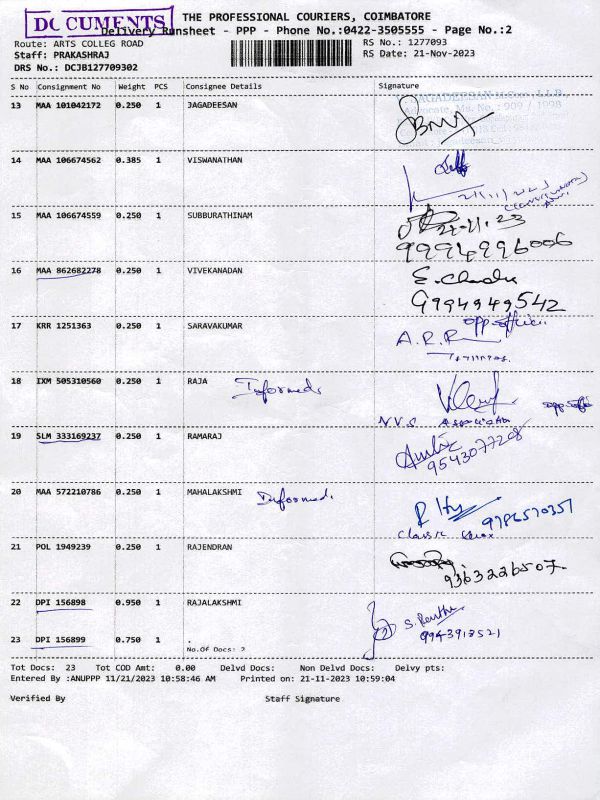 DOCUMENTS
THE PROFESSIONAL COURIERS, COIMBATORE
Delivery Runsheet - PPP - Phone No.:0422-3505555 - Page No.:2
Route: ARTS COLLEG ROAD RS No.: 1277093
Staff: PRAKASHRAJ RS Date: 21-Nov-2023
DRS No.: DCJB127709302
S No Consignment No Weight PCS Consignee Details Signature
13 MAA 101042172 0.250 1 JAGADEESAN
14 MAA 106674562 0.385 1 VISWANATHAN
15 MAA 106674559 0.250 1 SUBBURATHINAM
21-11-23
9994996006
16 MAA 862682278 0.250 1 VIVEKANADAN E. Chandra
9994949542
17 KRR 1251363 0.250 1 SARAVAKUMAR opp-office.
A.R.R
18 IXM 505310560 0.250 1 RAJA Informed
N.V.S Association
19 SLM 333169237 0.250 1 RAMARAJ
9543077208
20 MAA 572210786 0.250 1 MAHALAKSHMI Informed.
9786570357
Classic Xerox
21 POL 1949239 0.250 1 RAJENDRAN
9363226507
22 DPI 156898 0.950 1 RAJALAKSHMI
23 DPI 156899 0.750 1 . 9943913521
No.Of Docs: 2
Tot Docs: 23 Tot COD Amt: 0.00 Delvd Docs: Non Delvd Docs: Delvy pts:
Entered By :ANUPPP 11/21/2023 10:58:46 AM Printed on: 21-11-2023 10:59:04
Verified By Staff Signature